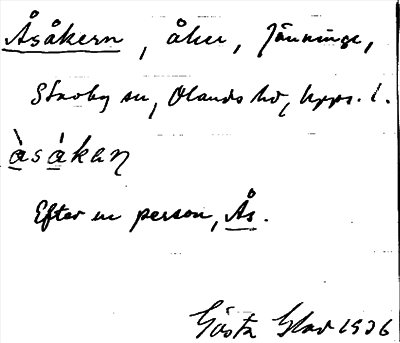 Åsåkern, åker, Jänninge,
Stavby sn, Olands hd, Upps. l.
àsákaɳ
Efter en person, Ås.
Gösta Glad 1936